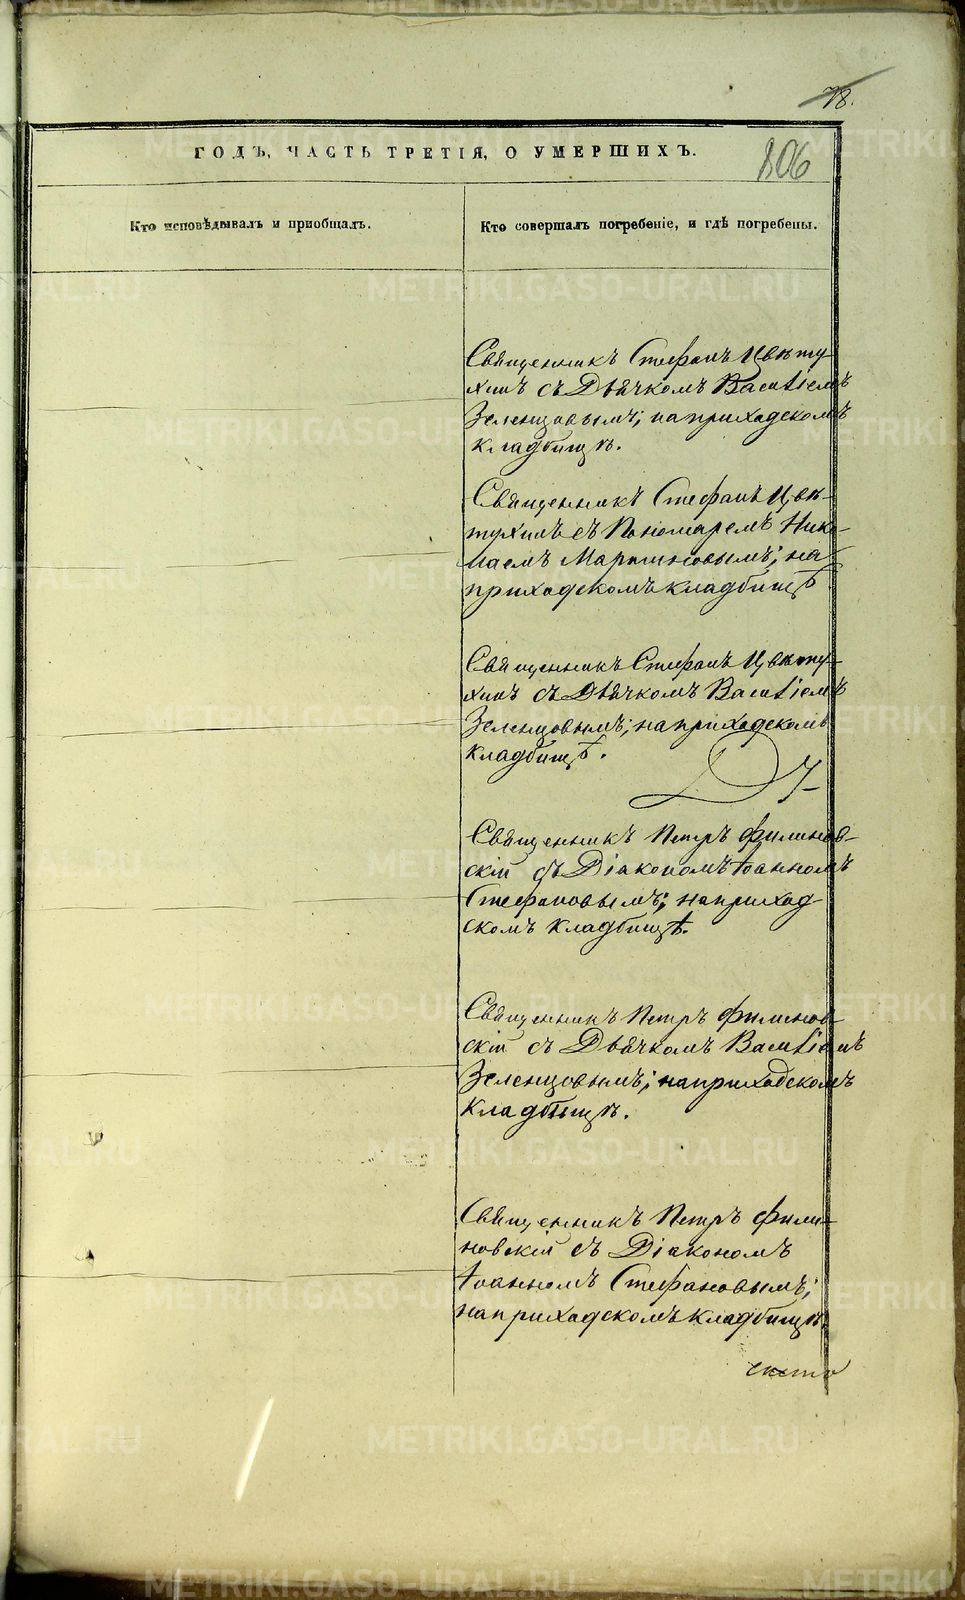 78.
ГОДЪ, ЧАСТЬ ТРЕТІЯ, О УМЕРШИХЪ.
806
Кто исповѣдывалъ и приобщалъ.
Кто совершалъ погребеніе, и гдѣ погребены.
Священникъ Стефанъ Цвѣту-
хинъ съ Дьячкомъ
Зеленцовымъ; на приходскомъ
кладбищѣ.
Священникъ Стефанъ Цвѣ-
тухинъ съ Пономаремъ Нико-
лаемъ Мартиновымъ; на
приходскомъ кладбищѣ
Священникъ Стефанъ Цвѣту-
хинъ съ Дьячкомъ
Зеленцовымъ; на приходскомъ
кладбищѣ.
Священникъ Петръ Филинов-
скій съ Діакономъ Іоанномъ
Стефановымъ; на приход
скомъ кладбищѣ.
Священникъ Петръ Филинов-
скій съ Дьячкомъ
Зеленцовымъ; на приходскомъ
кладбищѣ.
Священникъ Петръ Фили-
новскій съ Діакономъ
Іоанномъ Стефановымъ;
на приходскомъ кладбищѣ.
METRIKI.GASO-URAL.RU